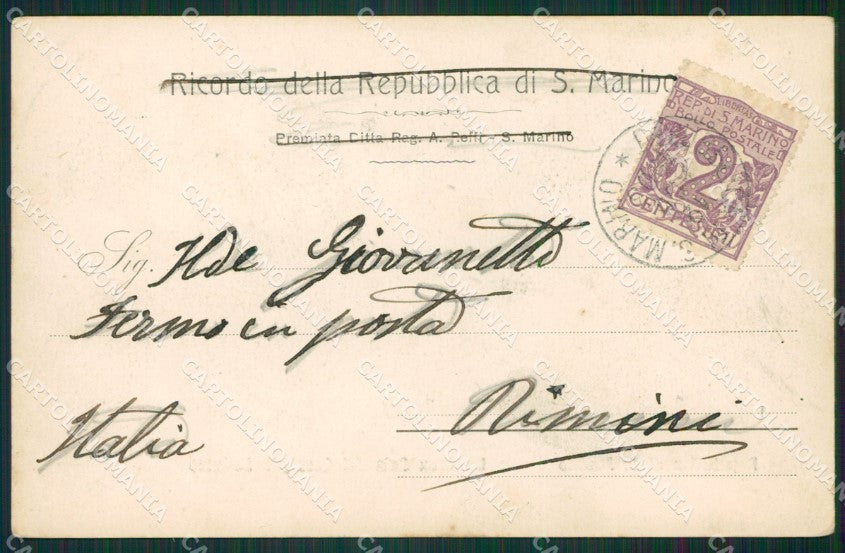 Ricordo della Repubblica di S. Marino
Premiata Ditta Rag. A. Reffi - S. Marino
LIBERTAS
REP. DI S. MARINO
Bollo POSTALE
2
CENTESIMI
S. MARINO
Sig. Ilde Giovanetti
Fermo in posta
Rimini
Italia
CARTOLINOMANIA